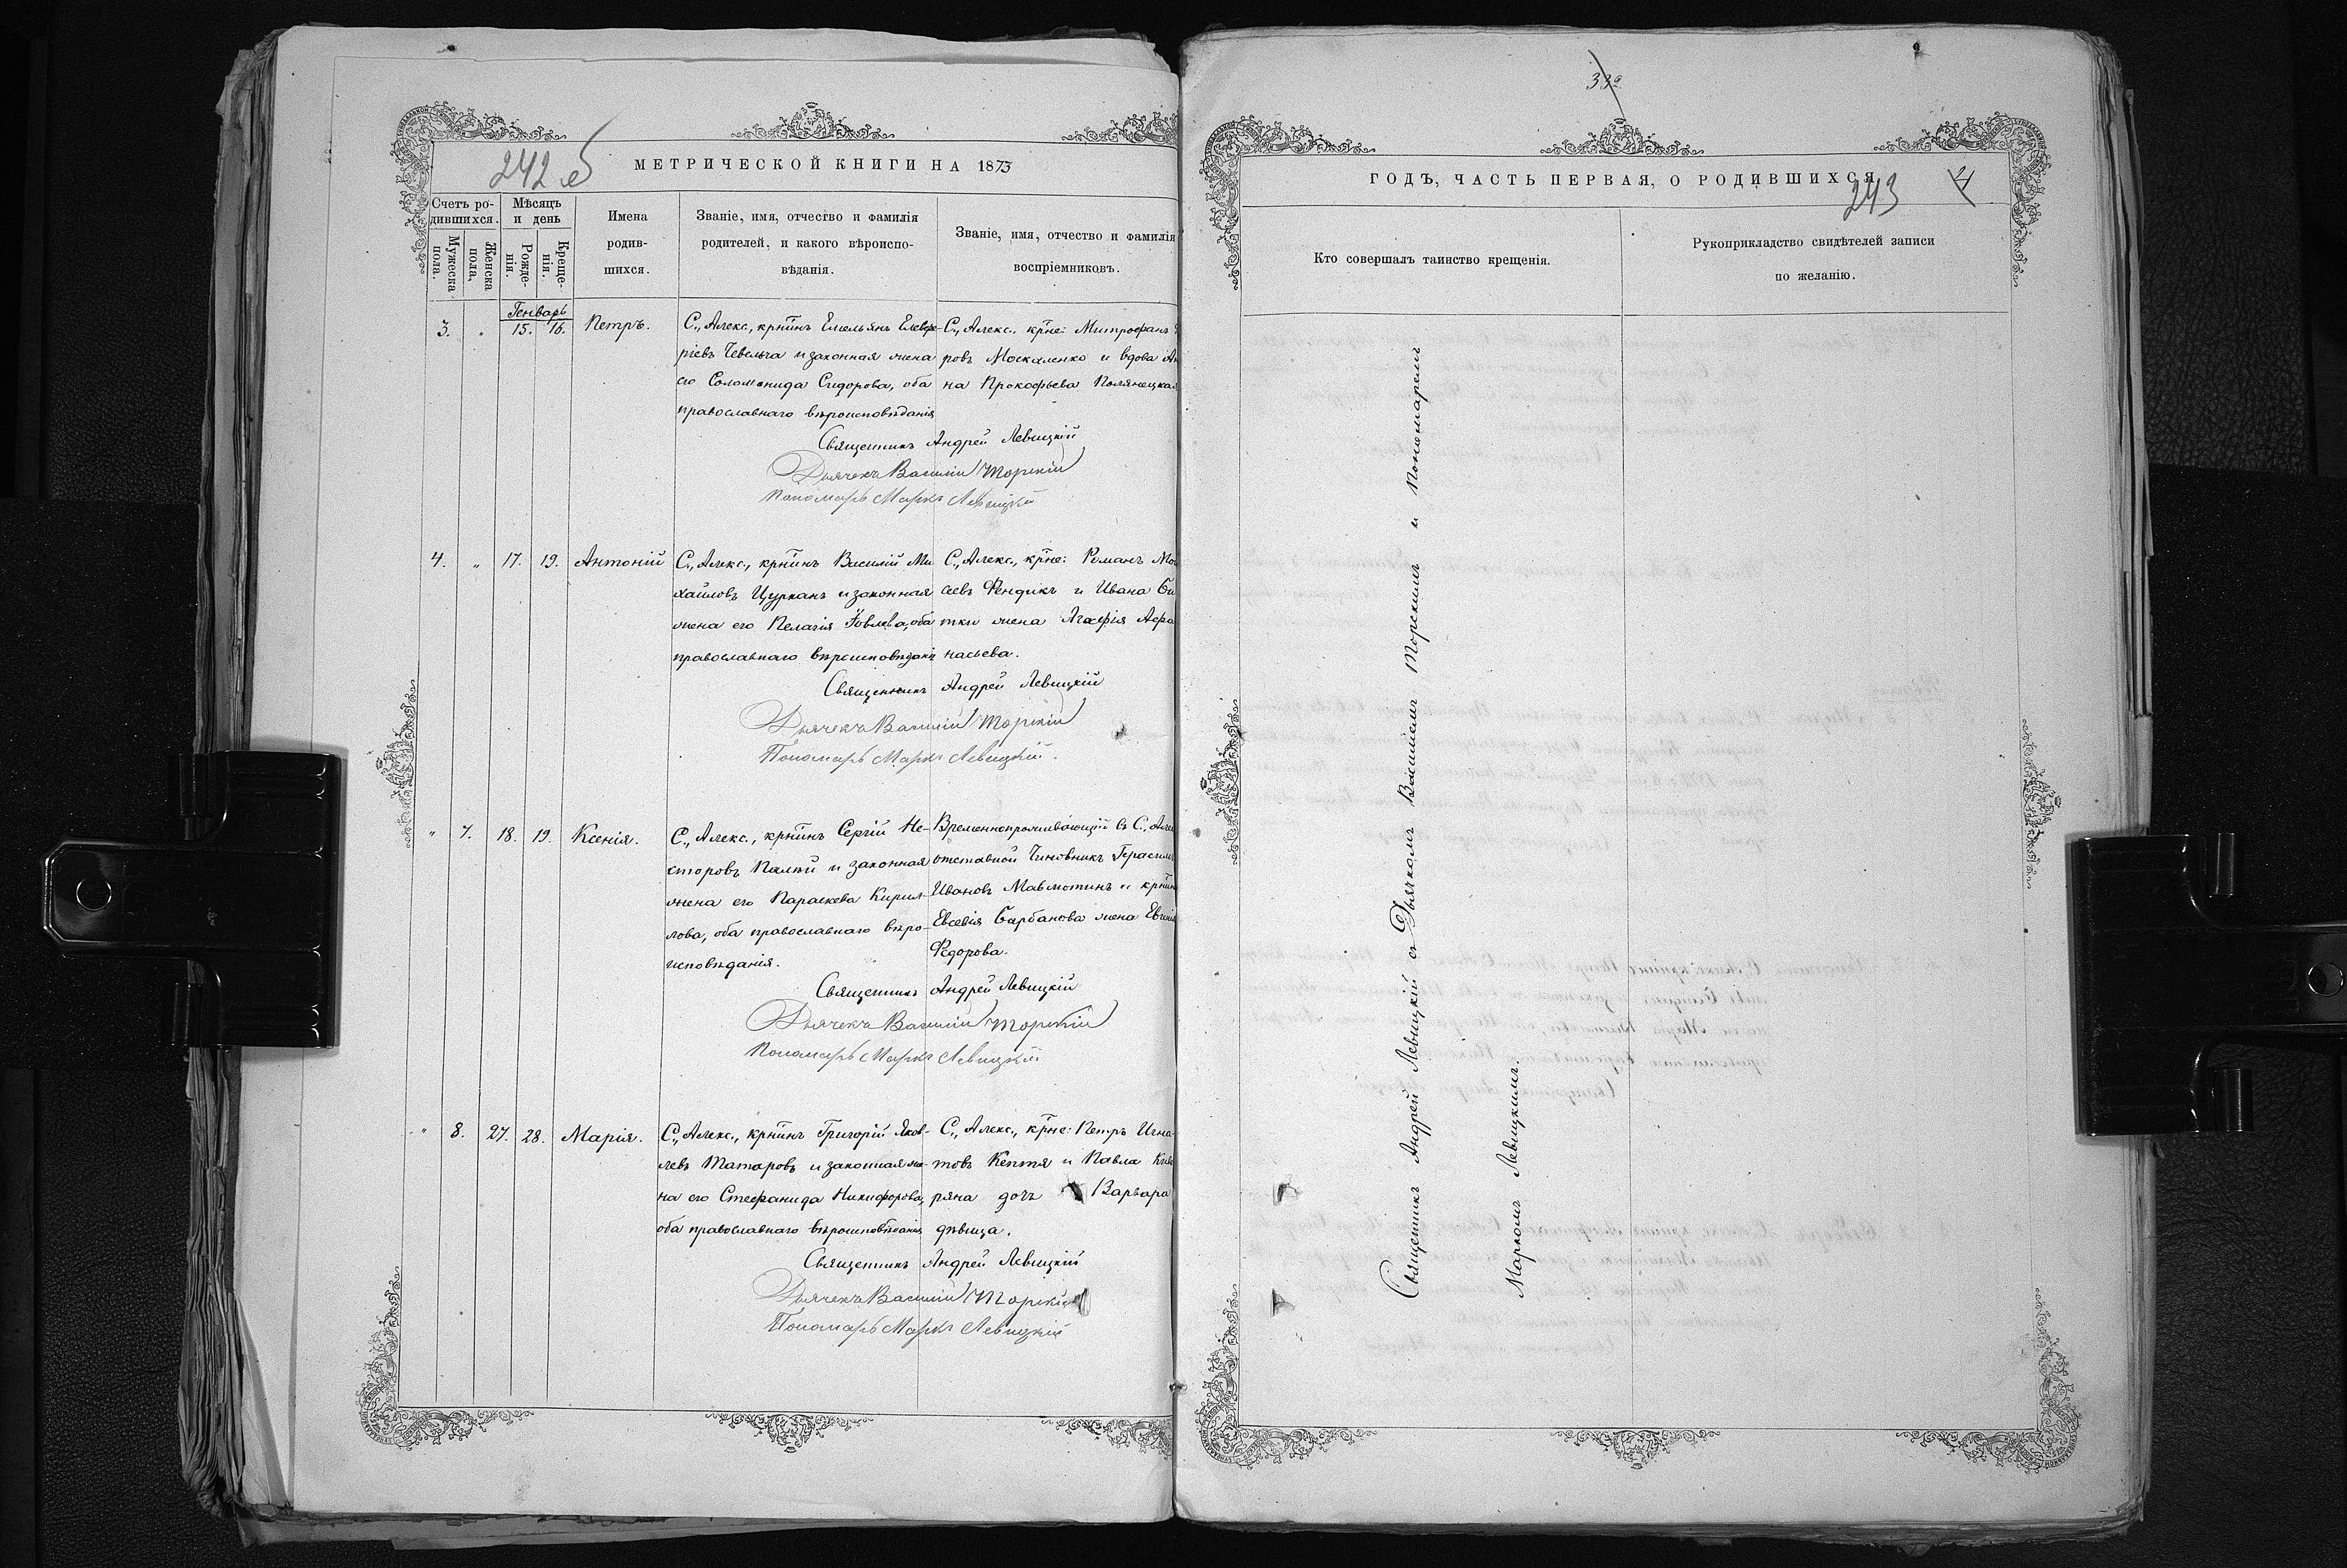 242 об
МЕТРИЧЕСКОЙ КНИГИ НА 1873
Счетъ ро-
дившихся.
Мѣсяцъ
и день
Мужеска
пола.
Женска
пола.
Рожде-
нія.
Креще-
нія.
Имена
родив-
шихся.
Званіе, имя, отчество и фамилія
родителей, и какого вѣроиспо-
вѣданія.
Званіе, имя, отчество и фамилія
воспріемниковъ.
Генварь
3. „ 15. 16. Петръ.
С., Алекс., крнинъ Емельянъ Елевфе-
ріевъ Чевельча и законная жена
его Соломонида Сидорова, оба
православнаго вѣроисповѣданія
С., Алекс., крне: Митрофанъ
ровъ Москаленко и вдова Ан
на Прокофьева Полянецкая
Священникъ Андрей Левицкій
Дьячекъ Василій Торскій
Пономарь Маркъ Левицкій
4. „ 17. 19. Антоній
С., Алекс., крнинъ Василій Ми-
хайловъ Цурканъ и законная
жена его Пелагія Іовлева, оба
православнаго вѣроисповѣданія
С., Алекс., крне: Романъ Мои
сеевъ Фендикъ и Ивана
тки жена Агафія Афа
насьева.
Священникъ Андрей Левицкій
Дьячекъ Василій Торскій
Пономарь Маркъ Левицкій.
„ 7. 18. 19. Ксенія.
С., Алекс., крнинъ Сергій Не-
сторовъ Палій и законная
жена его Параскева Кирил-
лова, оба православнаго вѣро-
исповѣданія.
Временнопроживающій въ С., Алек
отставной Чиновникъ Герасимъ
Ивановъ Мавмотинъ и крнина
Евсевія Барбанова жена Евгенія
Федорова.
Священникъ Андрей Левицкій
Дьячекъ Василій Торскій
Пономарь Маркъ Левицкій
„ 8. 27. 28. Марія.
С., Алекс., крнинъ Григорій Яков-
левъ Татаровъ и законная же-
на его Стефанида Никифорова,
оба православнаго вѣроисповѣданія
С., Алекс., крне: Петръ Игна-
товъ Кептя и Павла
ряна дочь Варвара
дѣвица.
Священникъ Андрей Левицкій
Дьячекъ Василій Торскій
Пономарь Маркъ Левицкій
ГОДЪ, ЧАСТЬ ПЕРВАЯ, О РОДИВШИХСЯ
243
Кто совершалъ таинство крещенія.
Рукоприкладство свидѣтелей записи
по желанію.
Священникъ Андрей Левицкій съ Дьячкомъ Василіемъ Торскимъ и Пономаремъ
Маркомъ Левицкимъ.